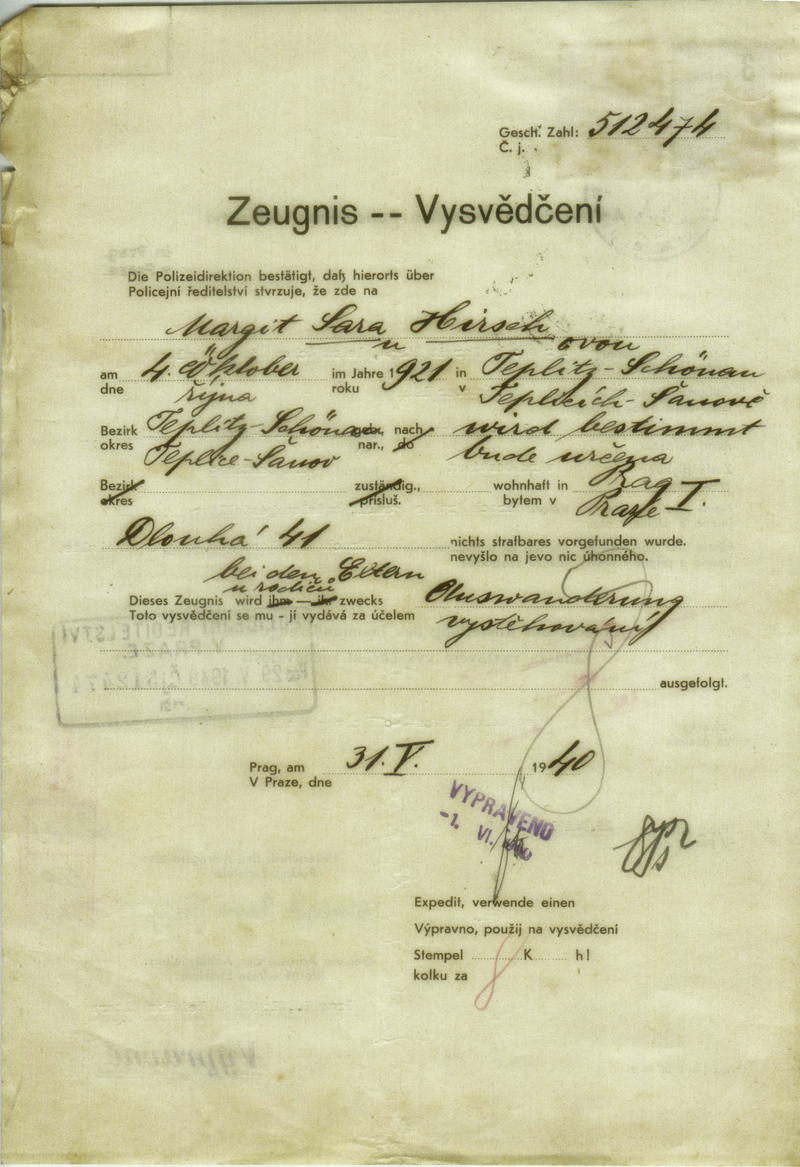 Gesch. Zahl: 512474
Č. j.
Zeugnis -- Vysvědčení
Die Polizeidirektion bestätigt, daß hierorts über
Policejní ředitelství stvrzuje, že zde na
Margit Sara Hirsch
u ovou
am 4. Oktober im Jahre 1921 in Teplitz-Schönau
dne října roku v Teplicích-Šanově
Bezirk Teplitz-Schönau geb., nach wird bestimmt
okres Teplice-Šanov nar., do bude určena
Bezirk zuständig., wohnhaft in Prag
okres přísluš. bytem v Praze I.
Dlouhá 41 nichts strafbares vorgefunden wurde.
nevyšlo na jevo nic úhonného.
bei den Eltern
u rodičů
Dieses Zeugnis wird ihm — ihr zwecks Auswanderung
Toto vysvědčení se mu - jí vydává za účelem vystěhování
ausgefolgt.
Prag, am 31. V. 1940
V Praze, dne
VYPRAVENO
-1. VI.
Expedit, verwende einen
Výpravno, použij na vysvědčení
Stempel K h!
kolku za